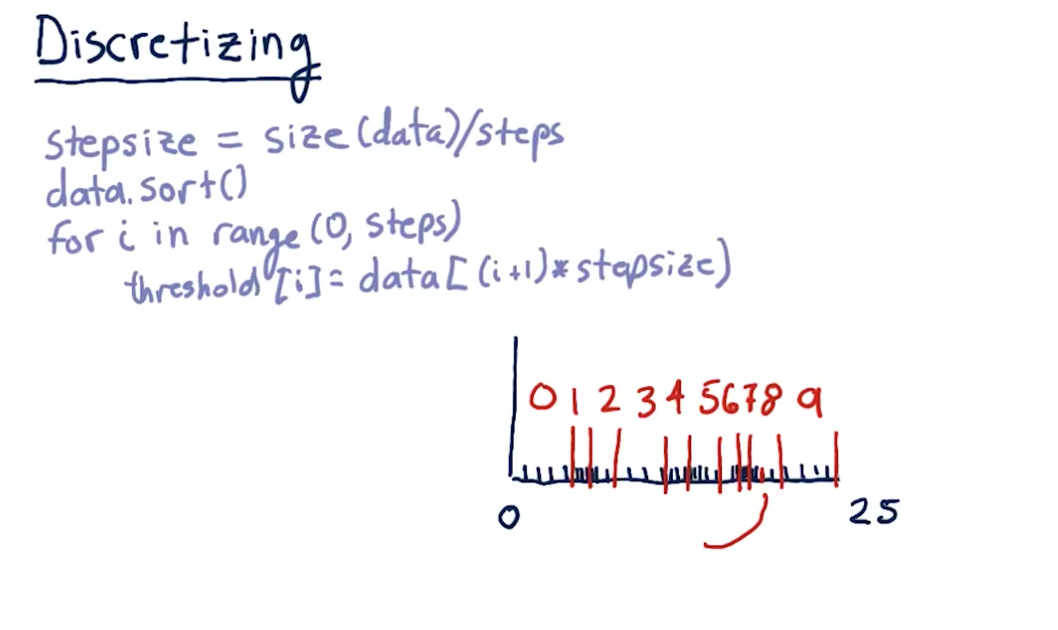 Discretizing
stepsize = size(data)/steps
data.sort()
for i in range(0, steps)
threshold[i]= data[(i+1)*stepsize)
0 1 2 3 4 5 6 7 8 9
0 25